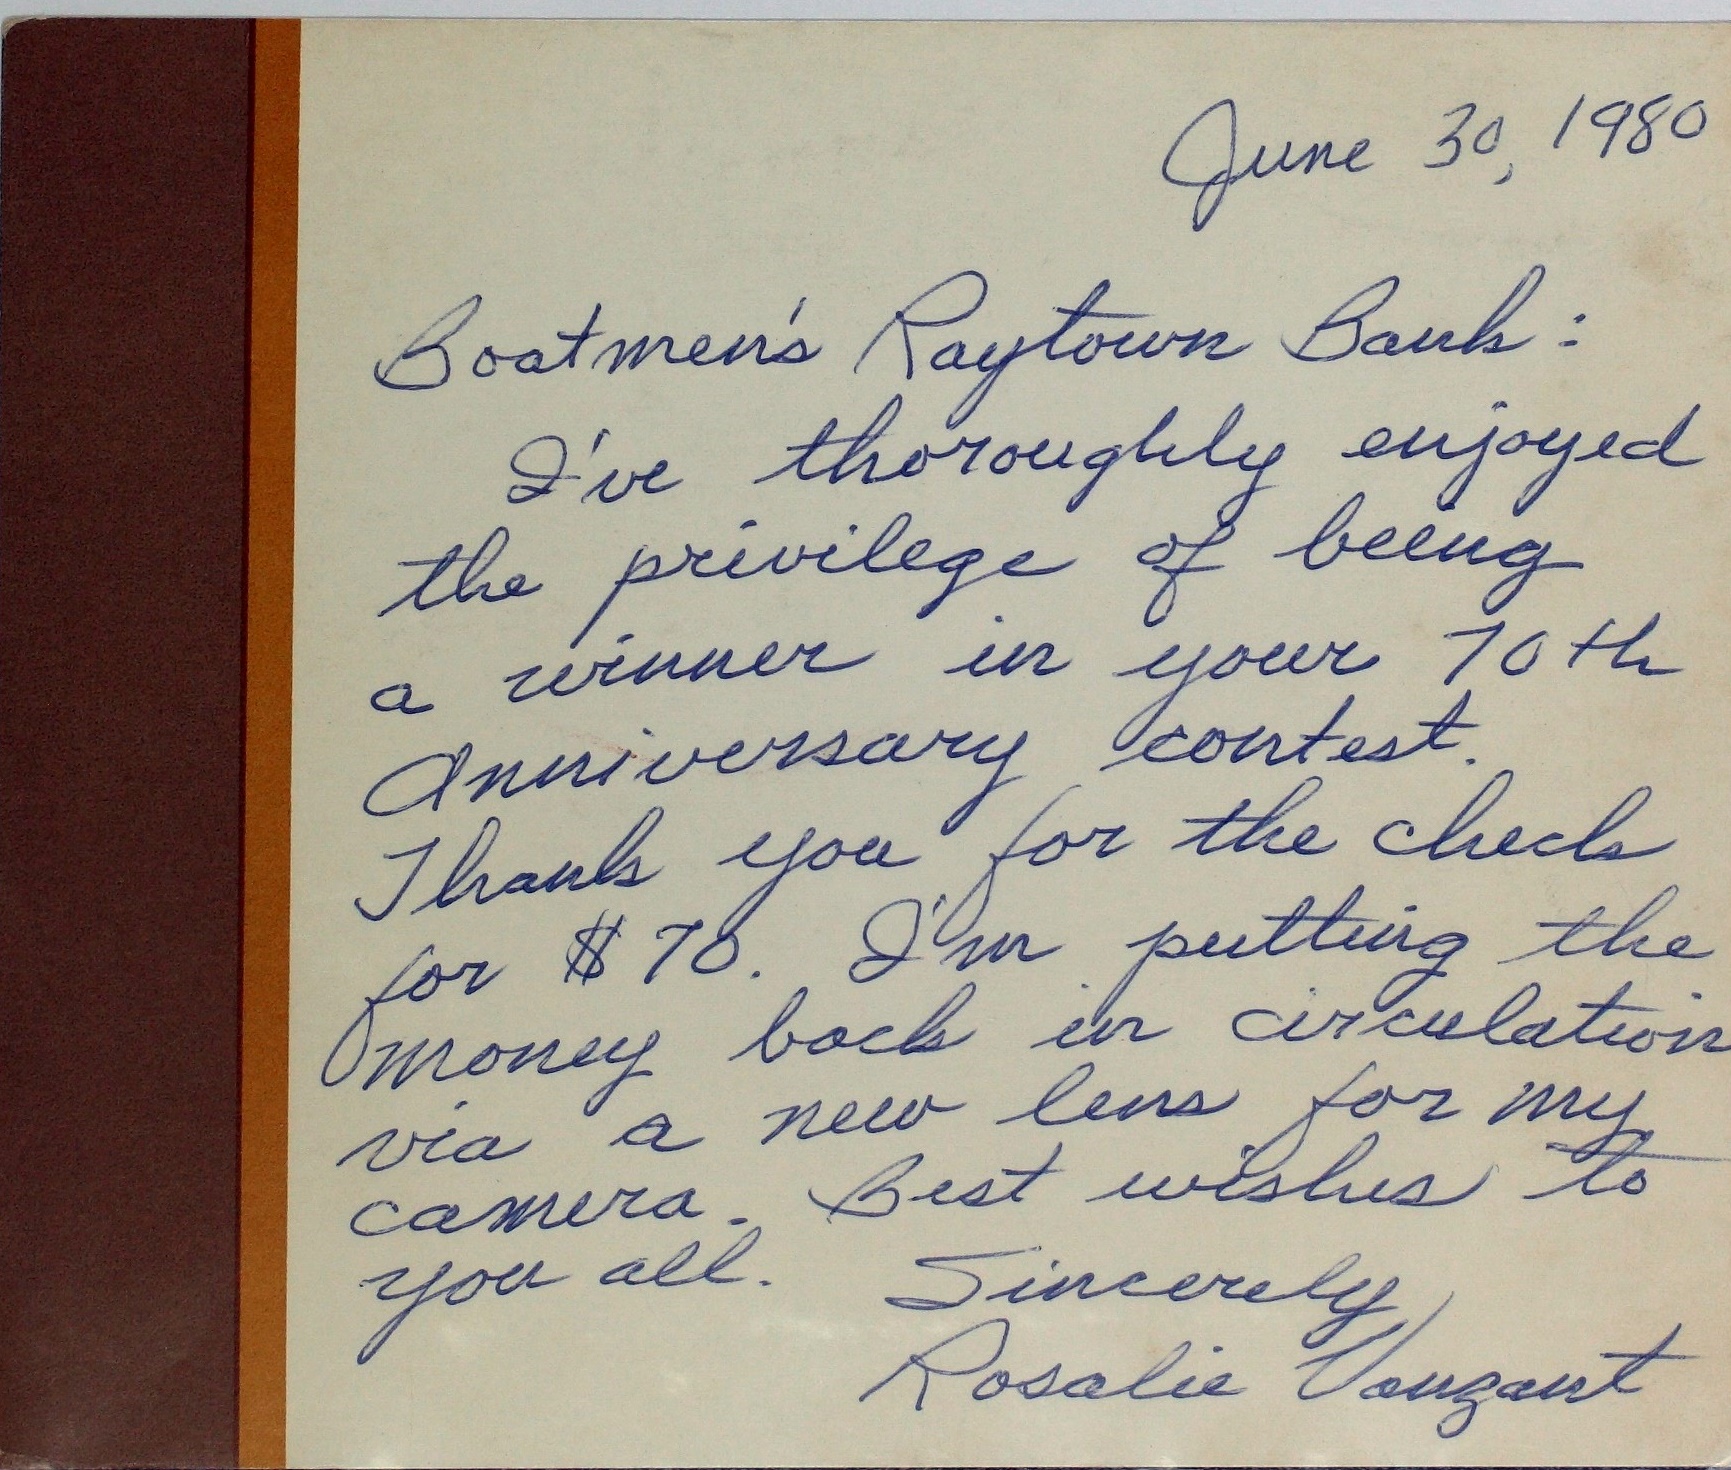 June 30, 1980
Boatmen's Raytown Bank:
I've thoroughly enjoyed
the privilege of being
a winner in your 70th
Anniversary contest.
Thank you for the check
for $70. I'm putting the
money back in circulation
via a new lens for my
camera. Best wishes to
you all. Sincerely,
Rosalie Vanzant